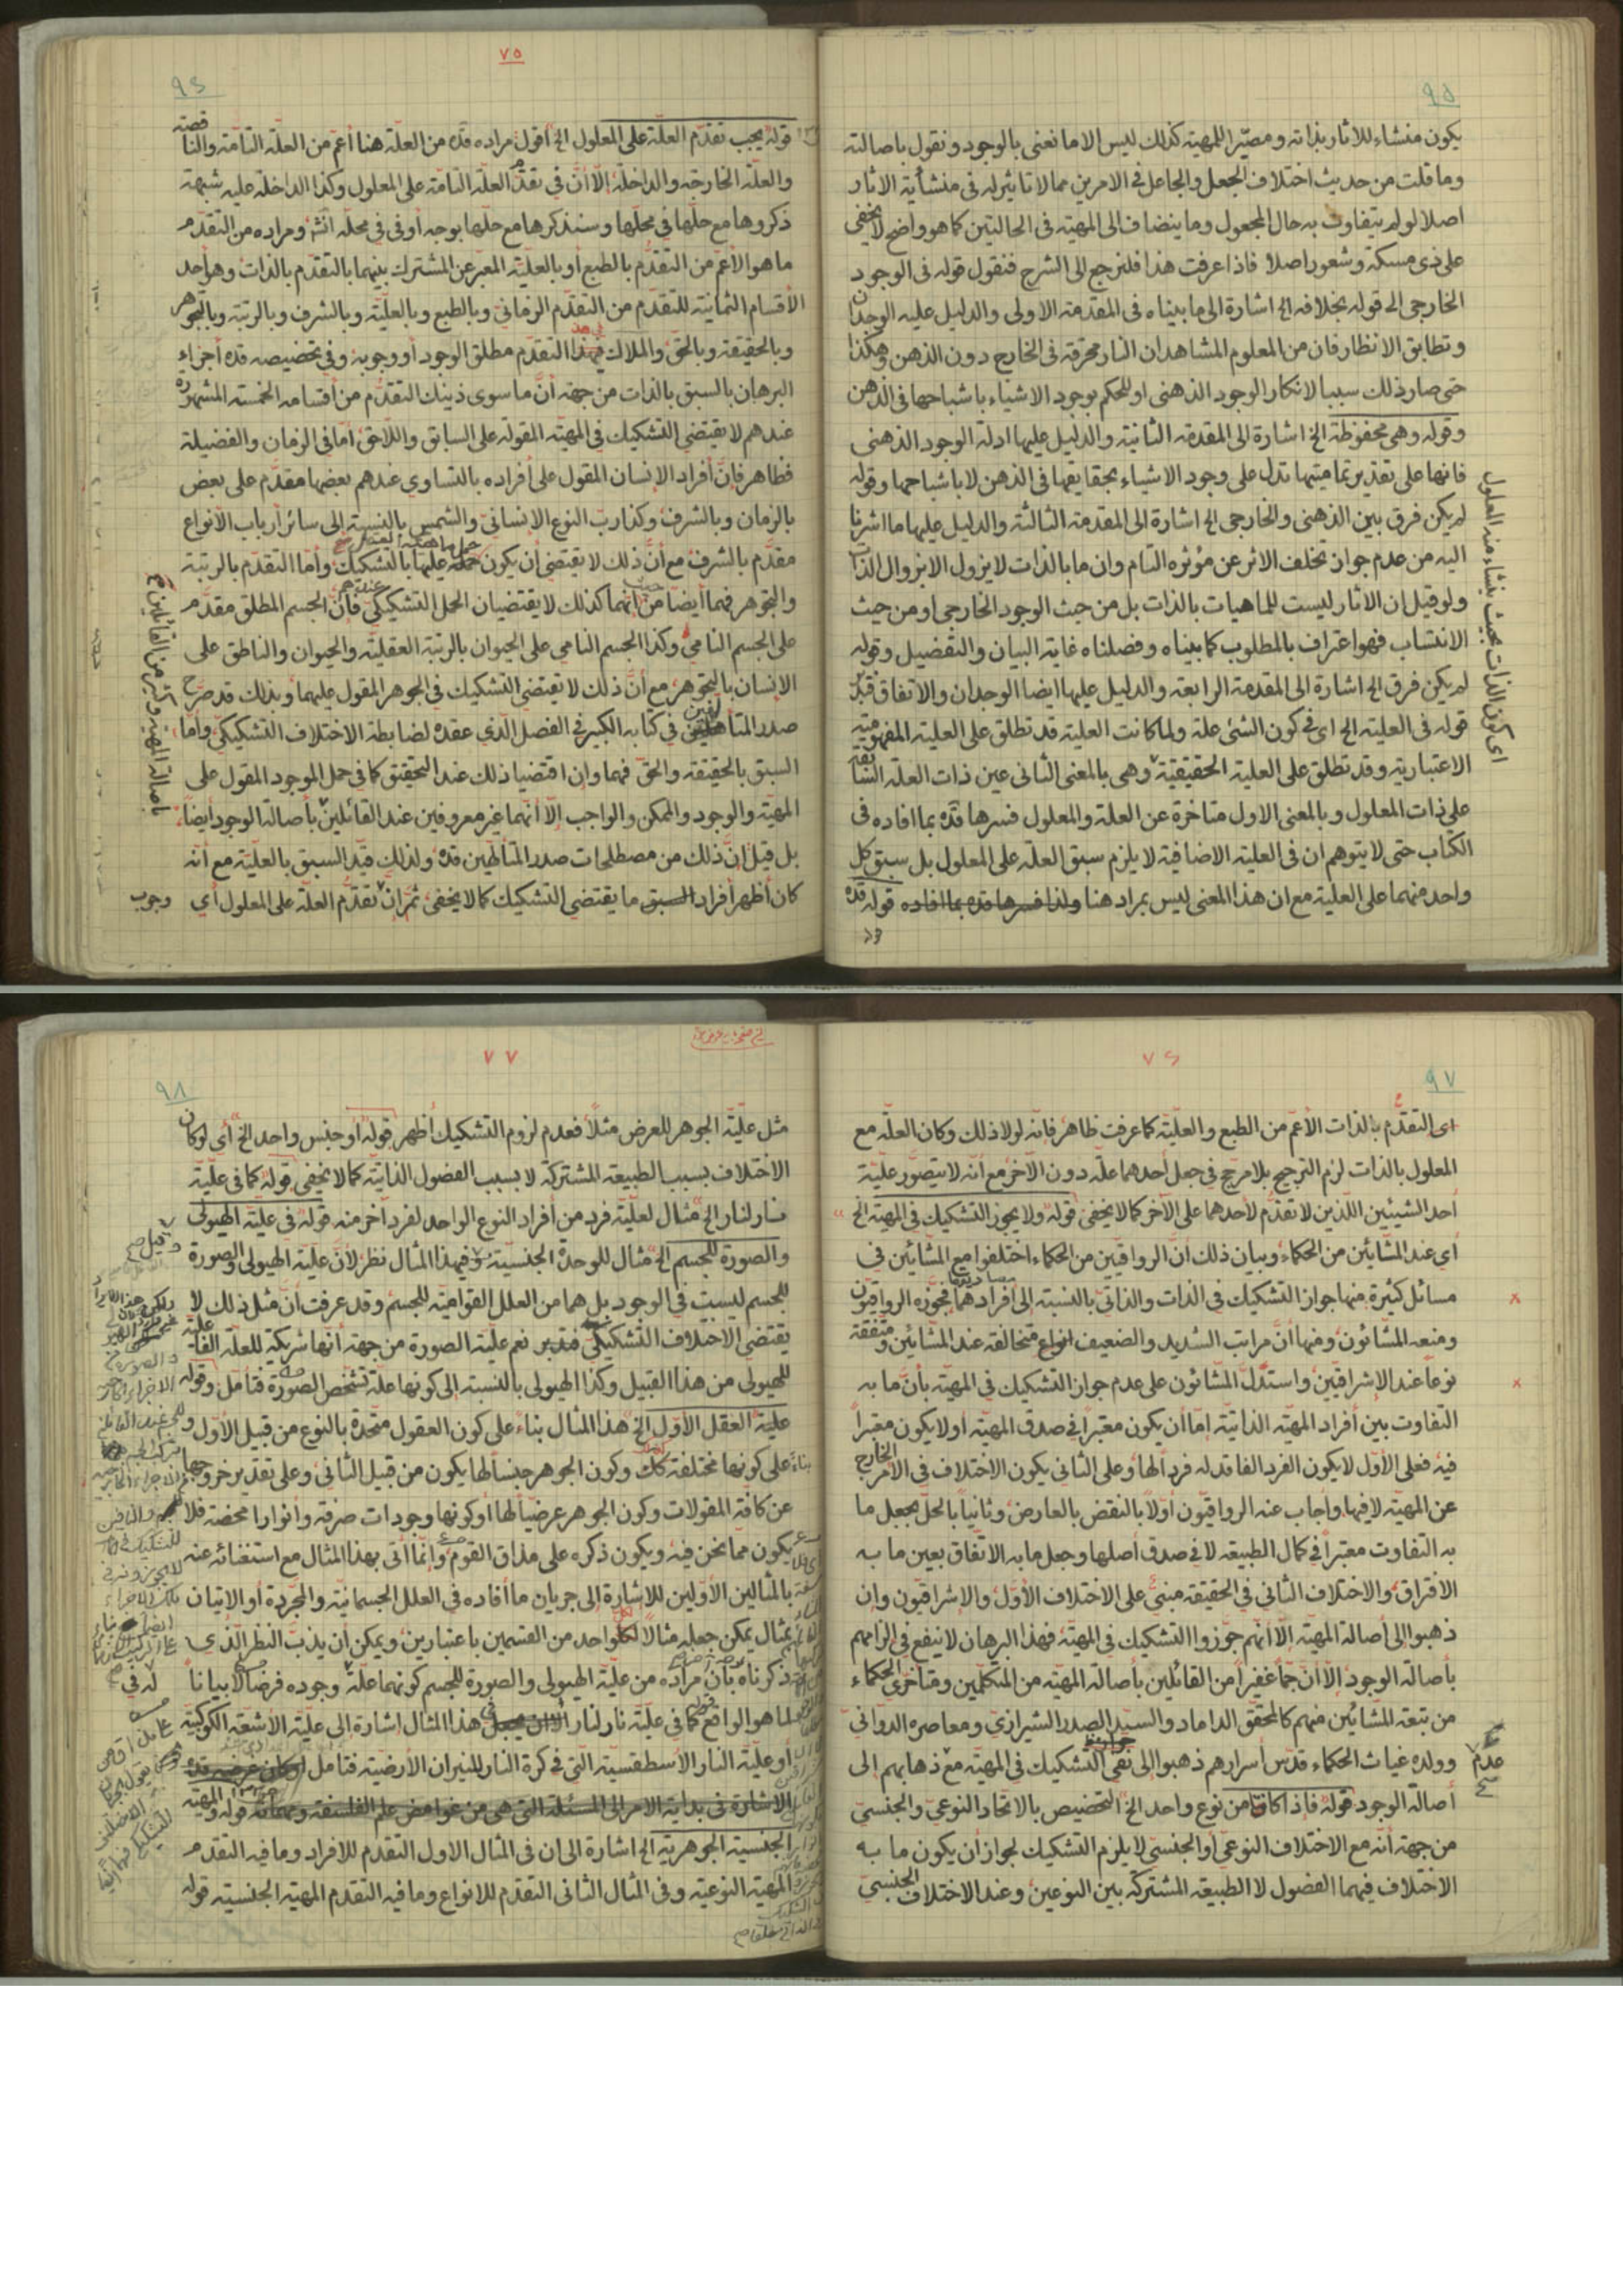 ٩٥
يكون منشاء للاثار بذاته ومصيّرا للمهية كذلك ليس الا ما نعنى بالوجود ونقول باصالته
وما قلت من حديث اختلاف الجعل والجاعل فى الامرين مما لا تاثير له فى منشأية الاثار
اصلا لو لم يتفاوت به حال المجعول وما ينضاف الى المهية فى الحالتين كما هو واضح لا يخفى
على ذى مسكة وشعور اصلا فاذا عرفت هذا فلنرجع الى الشرح فنقول قوله فى الوجود
الخارجى الى قوله بخلافه الخ اشارة الى ما بيناه فى المقدمة الاولى والدليل عليه الوجدان
وتطابق الانظار فان من المعلوم المشاهد ان النار محرقة فى الخارج دون الذهن وهكذا
حتى صار ذلك سببا لانكار الوجود الذهنى او للحكم بوجود الاشياء باشباحها فى الذهن
وقوله وهى محفوظة الخ اشارة الى المقدمة الثانية والدليل عليها ادلة الوجود الذهنى
فانها على تقدير تماميتها تدل على وجود الاشياء بحقايقها فى الذهن لا باشباحها وقوله
لم يكن فرق بين الذهنى والخارجى الخ اشارة الى المقدمة الثالثة والدليل عليها ما اشرنا
اليه من عدم جواز تخلف الاثر عن مؤثره التام وان ما بالذات لا يزول الا بزوال الذات
ولو قيل ان الآثار ليست للماهيات بالذات بل من حيث الوجود الخارجى او من حيث
الانتساب فهو اعتراف بالمطلوب كما بيناه وفصلناه غاية البيان والتفصيل وقوله
لم يكن فرق الخ اشارة الى المقدمة الرابعة والدليل عليها ايضا الوجدان والاتفاق فتدبر
قوله فى العلية الخ اى فى كون الشئ علة ولما كانت العلية قد تطلق على العلية المفهومية
الاعتبارية وقد تطلق على العلية الحقيقية وهى بالمعنى الثانى عين ذات العلة السابقة
على ذات المعلول وبالمعنى الاول متاخرة عن العلة والمعلول فسرها قده بما افاده فى
الكتاب حتى لا يتوهم ان فى العلية الاضافية لا يلزم سبق العلة على المعلول بل سبق كل
واحد منهما على العلية مع ان هذا المعنى ليس بمراد هنا ولذا فسرها قده بما افاده قوله قده
اى كون الذات بحيث ينشاء منه المعلول
٧٥
٩٦
قوله يجب تقدّم العلّة على المعلول الخ أقول مراده قدّه من العلّة هنا أعمّ من العلّة التامّة والناقصة
والعلّة الخارجة والداخلة إلّا أنّ في تقدّم العلّة التامّة على المعلول وكذا الداخلة عليه شبهة
ذكروها مع حلّها في محلّها وسنذكرها مع حلّها بوجه أوفى في محلّه انشه ومراده من التقدّم
ما هو الأعمّ من التقدّم بالطبع أو بالعليّة المعبّر عن المشترك بينهما بالتقدّم بالذات وهو أحد
الأقسام الثمانية للتقدّم من التقدّم الزماني وبالطبع وبالعليّة وبالشرف وبالرتبة وبالتجوهر
وبالحقيقة وبالحقّ والملاك في هذا التقدّم مطلق الوجود أو وجوبه وفي تخصيصه قده أجزاء
البرهان بالسبق بالذات من جهة أنّ ما سوى ذينك التقدّم من أقسامه الخمسة المشهورة
عندهم لا يقتضي التشكيك في المهيّة المقوله على السابق واللاحق أمّا في الزمان والفضيلة
فظاهر فإنّ أفراد الإنسان المقول على أفراده بالتساوي عندهم بعضها مقدّم على بعض
بالزمان وبالشرف وكذا ربّ النوع الإنساني والشمس بالنسبة إلى سائر أرباب الأنواع
مقدّم بالشرف مع أنّ ذلك لا يقتضي أن يكون حمله عليها بالتشكيك وأمّا التقدّم بالرتبة
والتجوهر فهما أيضاً من حيث انّهما كذلك لا يقتضيان الحمل التشكيكي فأنّ الجسم المطلق مقدّم
على الجسم النامي وكذا الجسم النامي على الحيوان بالرتبة العقليّة والحيوان والناطق على
الإنسان بالتجوهر مع أنّ ذلك لا يقتضي التشكيك في الجوهر المقول عليهما وبذلك قد صرّح
صدر المتألهين في كتابه الكبير في الفصل الّذي عقده لضابطة الاختلاف التشكيكي وأمّا
السبق بالحقيقة والحقّ فهما وإن اقتضيا ذلك عند التحقيق كما في حمل الموجود المقول على
المهيّة والوجود والممكن والواجب إلّا أنّهما غير معروفين عند القائلين بأصالة الوجود أيضاً
بل قيل إنّ ذلك من مصطلحات صدر المتألّهين قدّه ولذلك قيّد السبق بالعليّة مع أنّه
كان أظهر أفراد السبق ما يقتضي التشكيك كما لا يخفى ثمّ إنّ تقدّم العلّة على المعلول أي
وجوب
٧٦
٩٧
اى التقدّم بالذات الأعمّ من الطبع والعليّة كما عرفت ظاهر فإنّه لولا ذلك وكان العلّة مع
المعلول بالذات لزم الترجيح بلا مرجّح في جعل أحدهما علّة دون الآخر مع أنّه لا يتصوّر عليّة
أحد الشيئين اللّذين لا تقدّم لأحدهما على الآخر كما لا يخفى قوله ولا يجوز التشكيك في المهيّة الخ
أي عند المشائين من الحكماء وبيان ذلك أنّ الرواقيّين من الحكماء اختلفوا مع المشائين في
مسائل كثيرة منها جواز التشكيك في الذات والذاتي بالنسبة إلى أفرادهما فجوّزه الرواقيّون
ومنعه المشائون ومنها أنّ مراتب الشديد والضعيف انواع متخالفة عند المشائين ومتفقة
نوعاً عند الإشراقيّين واستدلّ المشائون على عدم جواز التشكيك في المهيّة بأنّ ما به
التفاوت بين أفراد المهيّة الذاتيّة إمّا أن يكون معتبراً في صدق المهيّة أو لا يكون معتبراً
فيه فعلى الأوّل لا يكون الفرد الفاقد له فرداً لها وعلى الثاني يكون الاختلاف في الأمر الخارج
عن المهيّة لا فيها وأجاب عنه الرواقيّون أوّلاً بالنقض بالعارض وثانياً بالحلّ بجعل ما
به التفاوت معتبراً في كمال الطبيعة لا في صدق أصلها وجعل ما به الاتّفاق بعين ما به
الافتراق والاختلاف الثاني في الحقيقة مبنيّ على الاختلاف الأوّل والإشراقيّون وإن
ذهبوا إلى أصالة المهيّة إلّا أنّهم جوّزوا التشكيك في المهيّة فهذا البرهان لا ينفع في إلزامهم
بأصالة الوجود إلّا أنّ جمّاً غفيراً من القائلين بأصالة المهيّة من المتكلّمين ومتأخّري الحكماء
من تبعة المشائين منهم كالمحقّق الداماد والسيّد الصدر الشيرازي ومعاصره الدواني
وولده غياث الحكماء قدّس أسرارهم ذهبوا إلى نفى التشكيك في المهيّة مع ذهابهم إلى
عدم
أصالة الوجود قوله فإذا كانتا من نوع واحد الخ التخصيص بالاتحاد النوعي والجنسي
من جهة أنّه مع الاختلاف النوعي أو الجنسي لا يلزم التشكيك لجواز أن يكون ما به
الاختلاف فيهما الفصول لا الطبيعة المشتركة بين النوعين وعند الاختلاف الجنسي
٧٧
٩٨
مثل عليّة الجوهر للعرض مثلاً فعدم لزوم التشكيك أظهر قوله أو جنس واحد الخ أي لو كان
الاختلاف بسبب الطبيعة المشتركة لا بسبب الفصول الذاتيّة كما لا يخفى قوله كما في عليّة
نار لنار الخ مثال لعليّة فرد من أفراد النوع الواحد لفرد آخر منه قوله في عليّة الهيولى
والصورة للجسم الخ مثال للوحدة الجنسيّة وفي هذا المثال نظر لأنّ عليّة الهيولى والصورة
للجسم ليست في الوجود بل هما من العلل القواميّة للجسم وقد عرفت أنّ مثل ذلك لا
يقتضي الاختلاف التشكيكي فتدبر نعم عليّة الصورة من جهة أنّها شريكة للعلّة
للهيولى من هذا القبيل وكذا الهيولى بالنسبة إلى كونها علّة تشخّص الصورة فتأمّل وقوله
عليّة العقل الأوّل الخ هذا المثال بناءً على كون العقول متّحدة بالنوع من قبيل الأوّل و
على كونها مختلفة كذلك وكون الجوهر جنساً لها يكون من قبيل الثاني وعلى تقدير خروجها
عن كافّة المقولات وكون الجوهر عرضيّاً لها أو كونها وجودات صرفة وأنوارا محضة فلا
يكون ممّا نحن فيه ويكون ذكره على مذاق القوم وإنّما أتى بهذا المثال مع استغنائه عنه
بالمثالين الأوّلين للإشارة إلى جريان ما أفاده في العلل الجسمانيّة والمجرّدة أو الاتيان
بمثال يمكن جعله مثالاً لكل واحد من القسمين باعتبارين ويمكن أن يذبّ النظر الّذي
ذكرناه بأنّ مراده من عليّة الهيولى والصورة للجسم كونهما علّة وجوده فرضاً لا بياناً
لما هو الواقع كما في عليّة نار لنار هذا المثال إشارة إلى عليّة الأشعّة الكوكبيّة
أو عليّة النار الأسطقسيّة الّتي في كرة النار للنيران الأرضيّة فتأمل
الاشارة فى بداية الامر الى المسئلة التى هى من غوامض علم الفلسفة قوله والمهيّة
الجنسية الجوهرية الخ اشارة الى ان فى المثال الاول التقدم للافراد وما فيه التقدم
المهية النوعية وفى المثال الثانى التقدم للانواع وما فيه التقدم المهية الجنسية قوله